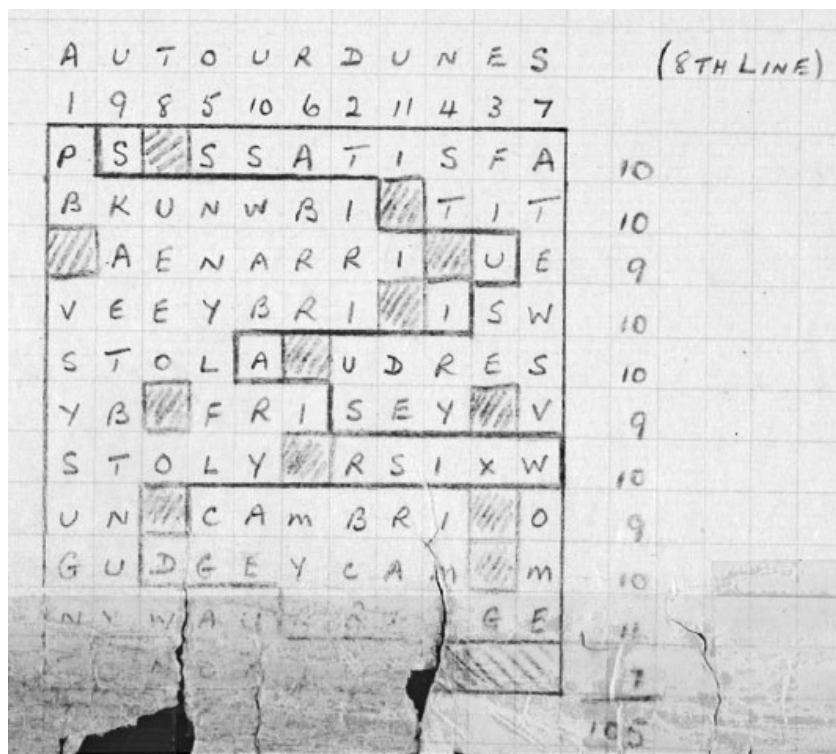 A U T O U R D U N E S (8TH LINE)
1 9 8 5 10 6 2 11 4 3 7
P S S S A T I S F A 10
B K U N W B I T I T 10
A E N A R R I U E 9
V E E Y B R I I S W 10
S T O L A U D R E S 10
Y B F R I S E Y V 9
S T O L Y R S I X W 10
U N C A M B R I O 9
G U D G E Y C A M M 10
N Y W A G E 11
7
105